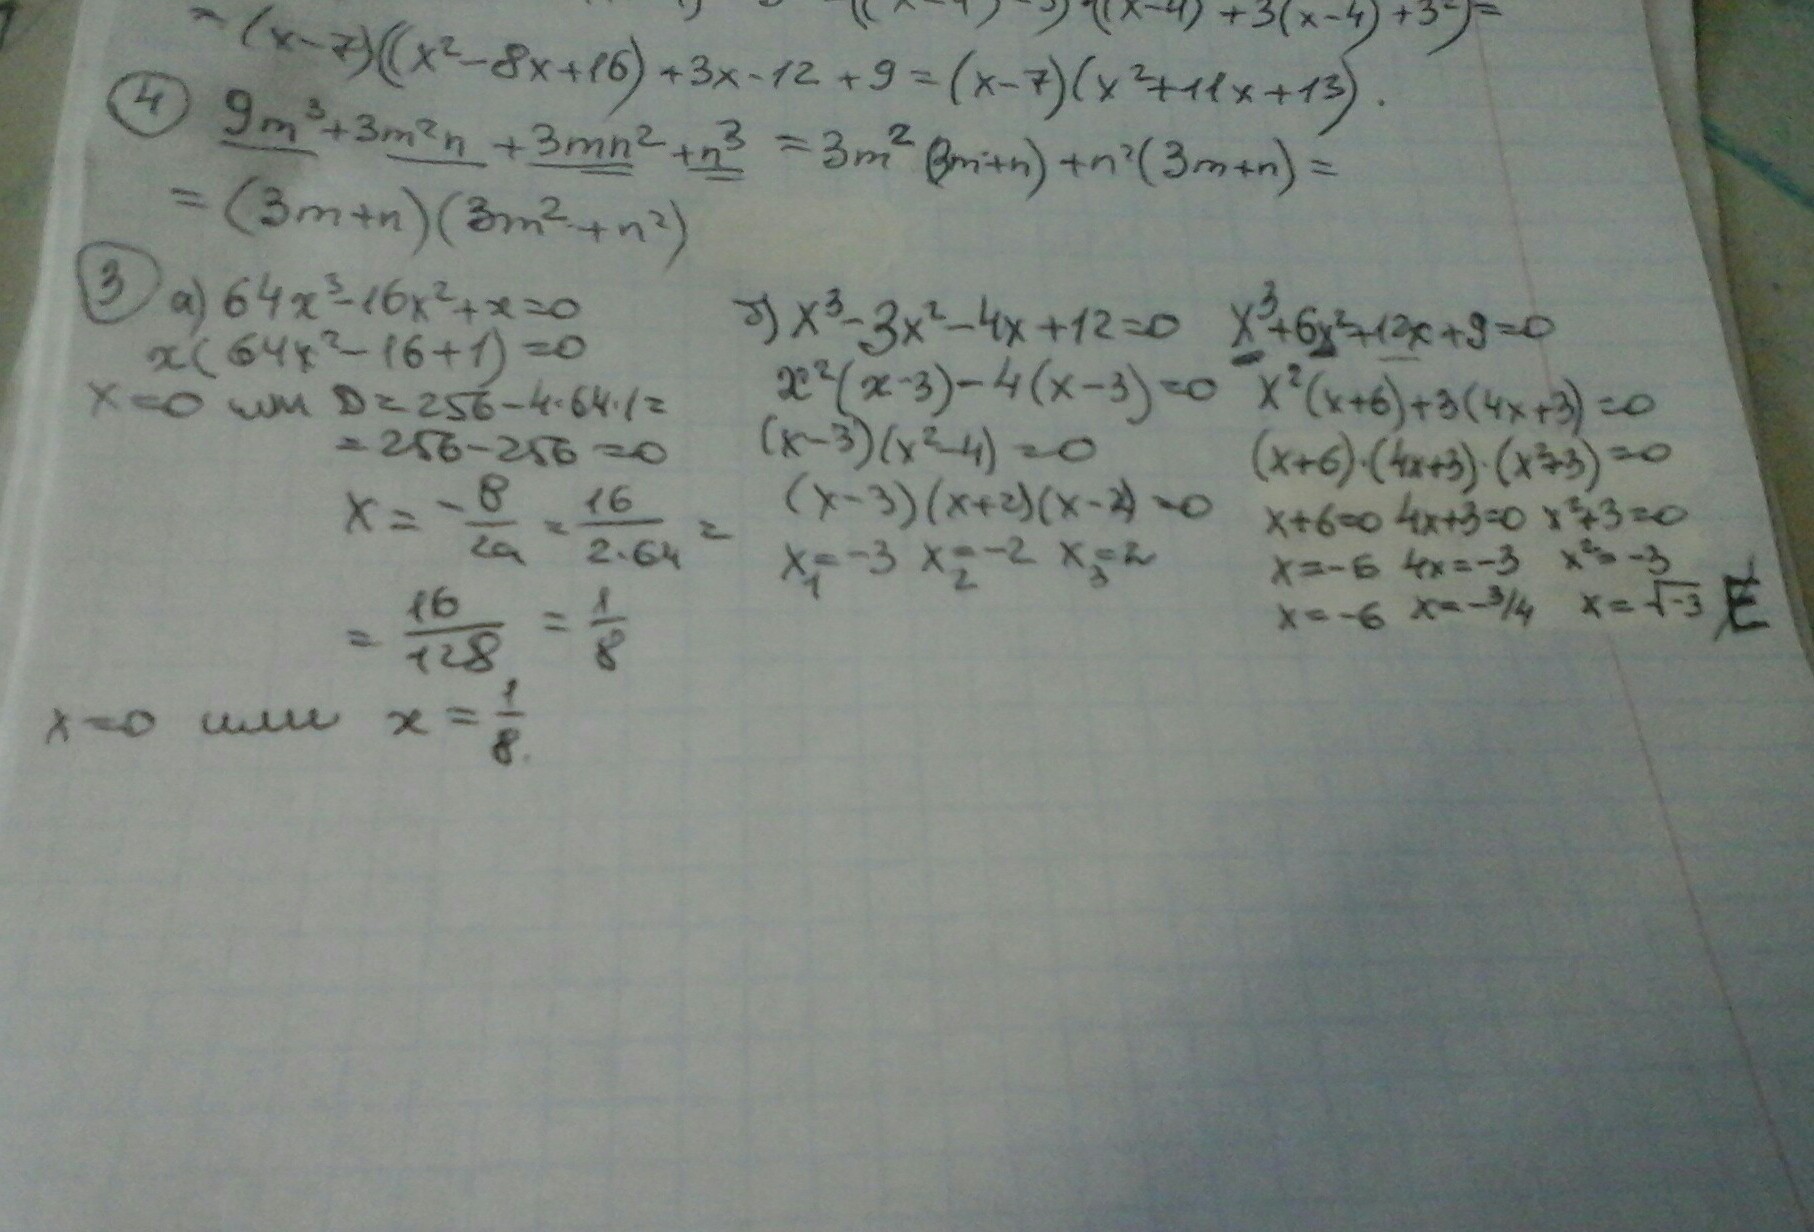 ((x-4)-3)((x-4) + 3(x-4)+3²)=
= (x-7)((x²-8x+16)+3x-12+9=(x-7)(x²+11x+13).
④ 9m³+3m²n+3mn²+n³ = 3m²(3m+n)+n²(3m+n)=
= (3m+n)(3m²+n²)
③ а) 64x³-16x²+x=0
x(64x²-16+1)=0
x=0 или D=256-4·64·1=
=256-256=0
x = -в/2a = 16/2·64 =
= 16/128 = 1/8
x=0 или x = 1/8.
б) x³-3x²-4x+12=0
x²(x-3)-4(x-3)=0
(x-3)(x²-4)=0
(x-3)(x+2)(x-2)=0
x₁=-3 x₂=-2 x₃=2
x³+6x²+12x+9=0
x²(x+6)+3(4x+3)=0
(x+6)·(4x+3)·(x²+3)=0
x+6=0 4x+3=0 x²+3=0
x=-6 4x=-3 x²=-3
x=-6 x=-3/4 x=√-3 ∉